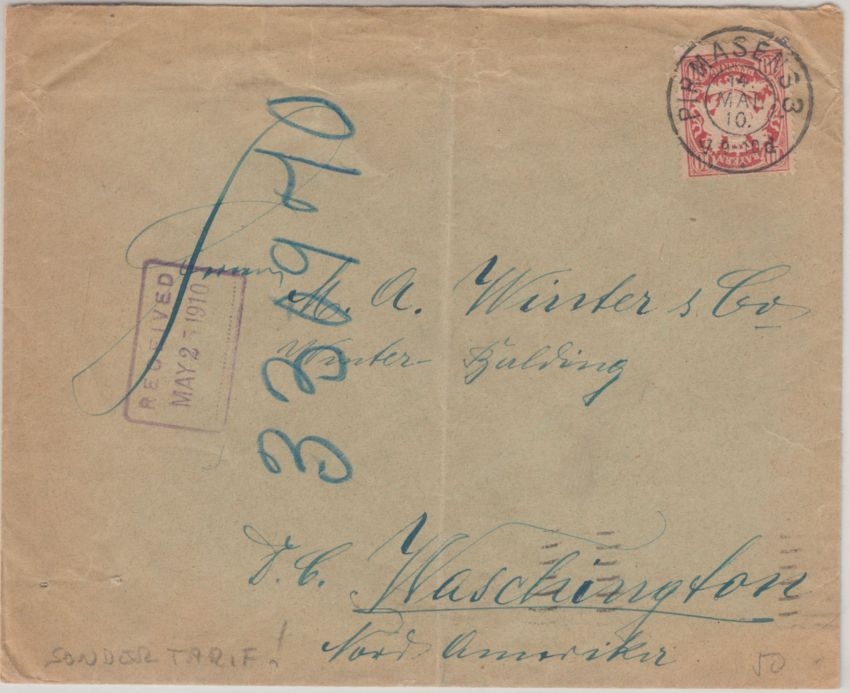 PIRMASENS 3
14.
MAI.
10.
BAYERN
RECEIVED
MAY 25 1910
337970
M. A. Winter & Co
Winter- Building
D. C. Waschington
Nord Amerika
SONDERTARIF!
50